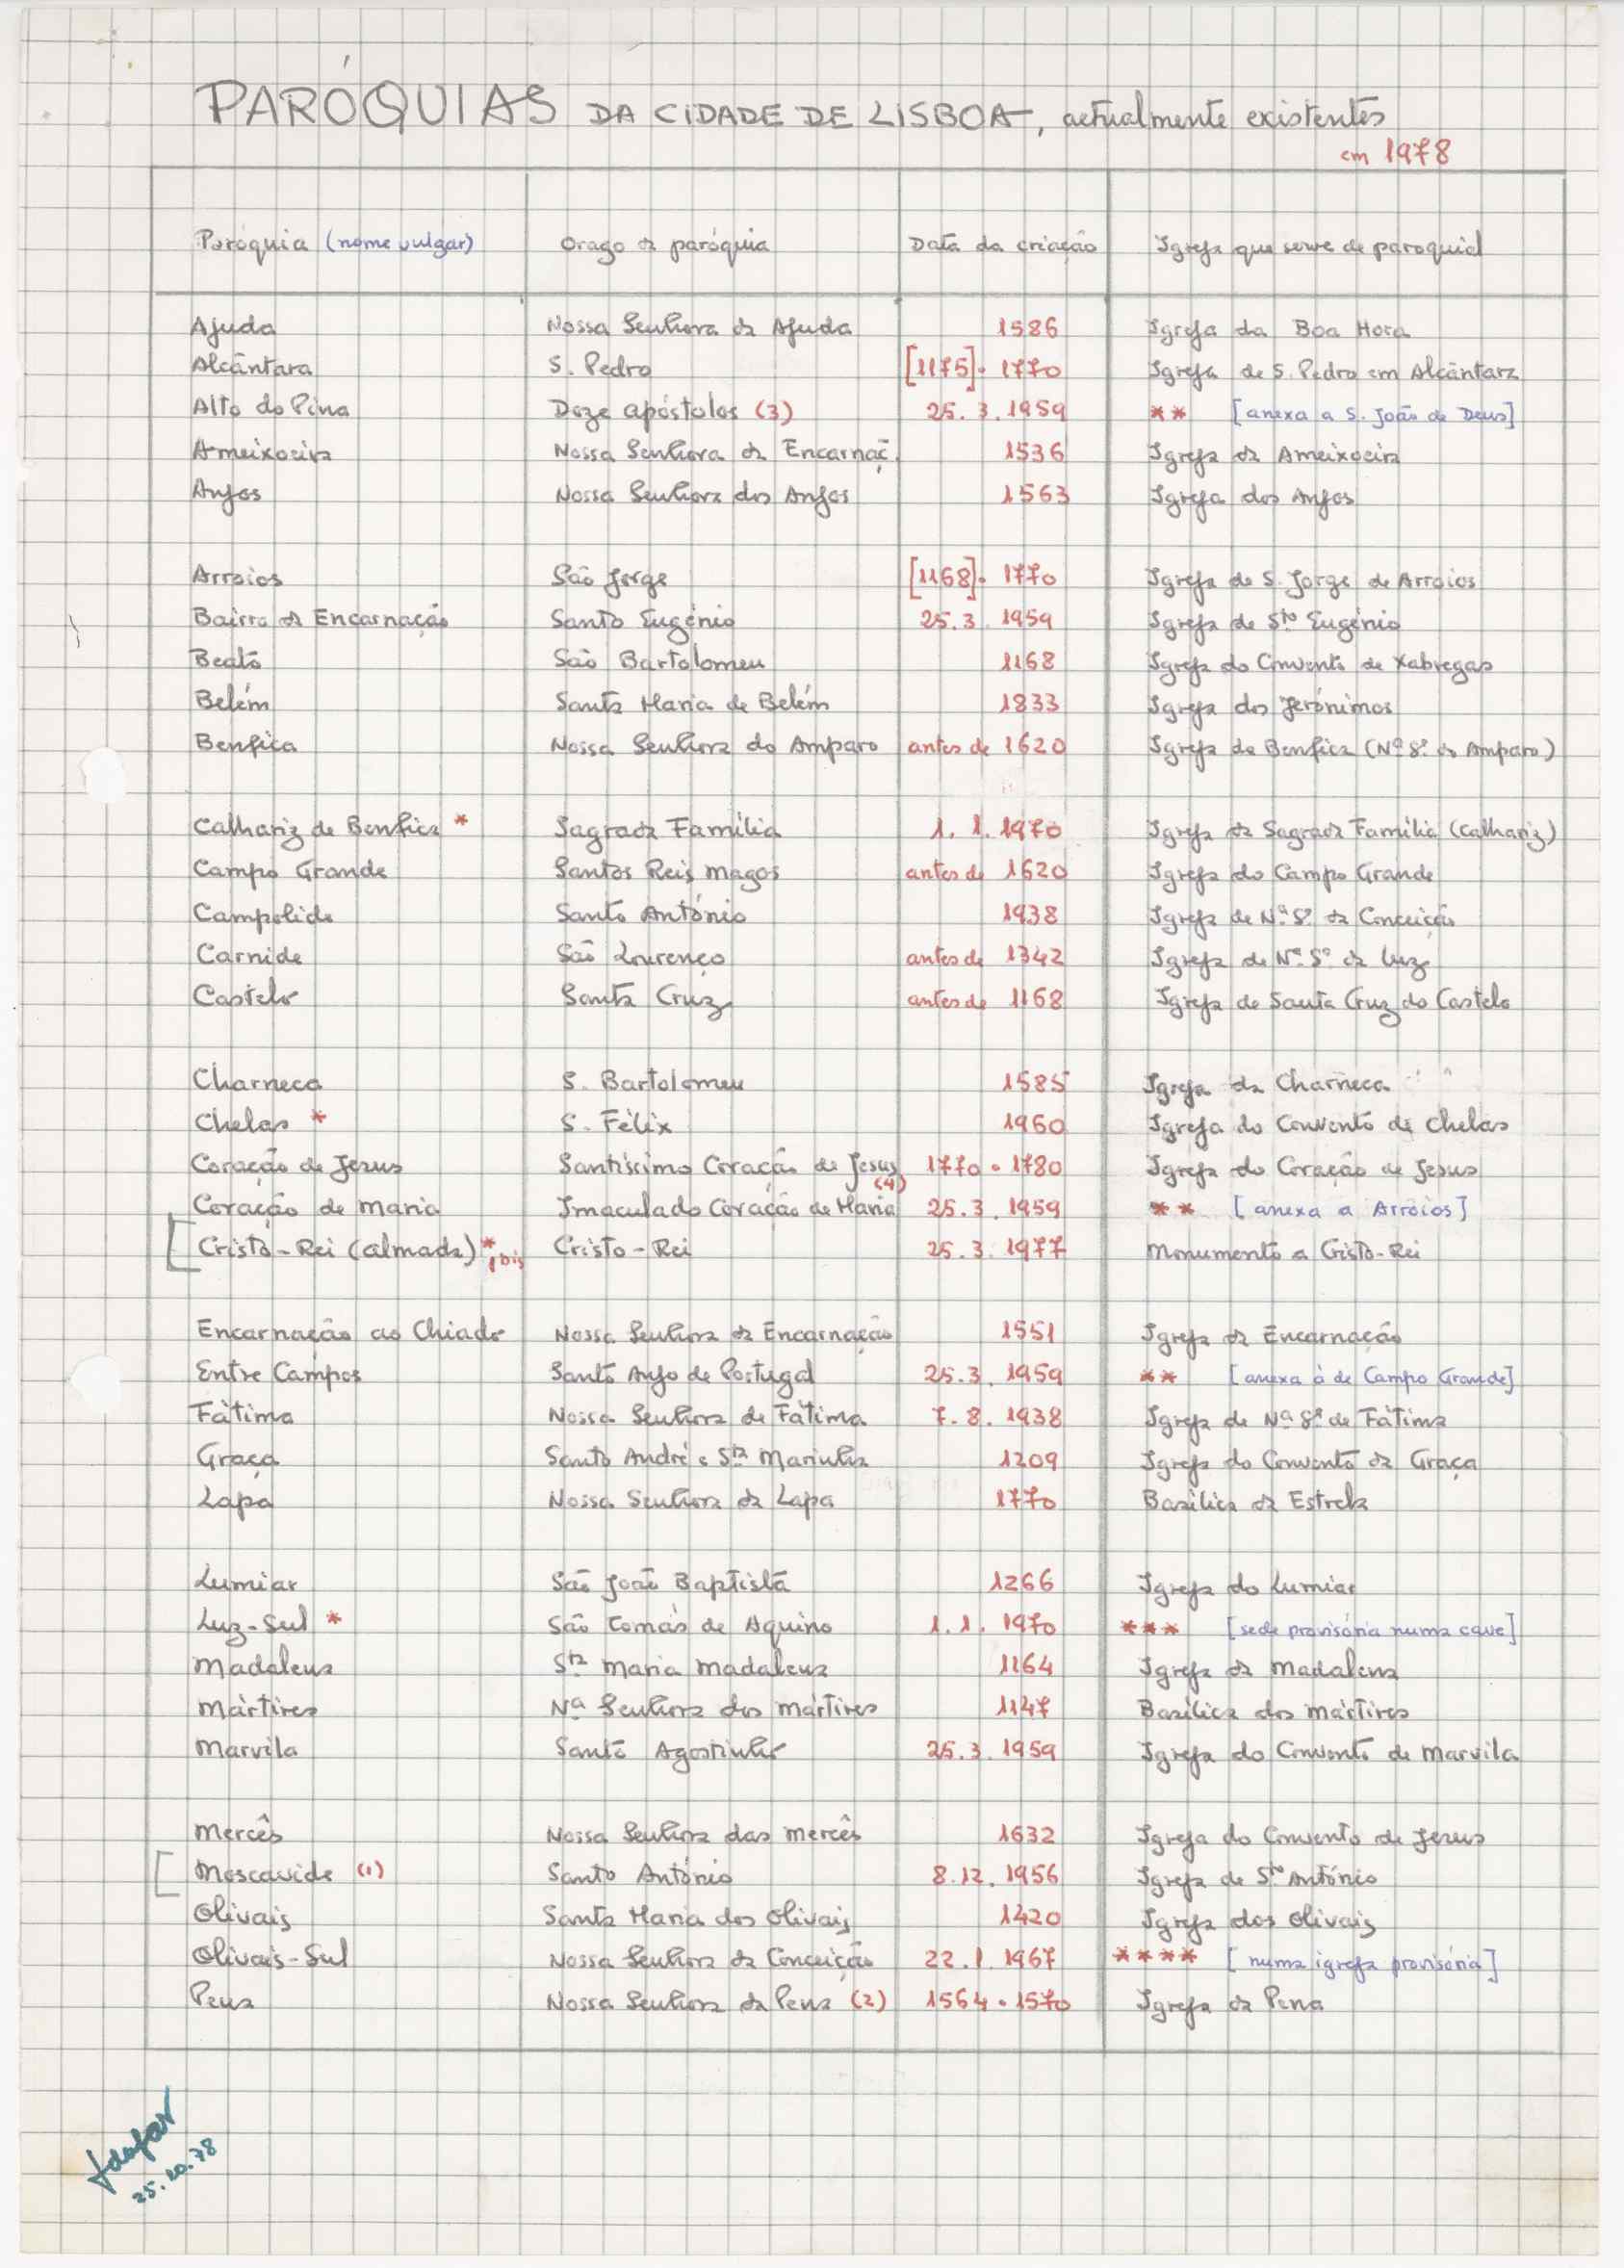 PARÓQUIAS DA CIDADE DE LISBOA, actualmente existentes
em 1978
Paróquia (nome vulgar) Orago da paróquia Data da criação Igreja que serve de paroquial
Ajuda Nossa Senhora da Ajuda 1586 Igreja da Boa Hora
Alcântara S. Pedro [1175]. 1770 Igreja de S. Pedro em Alcântara
Alto do Pina Doze apóstolos (3) 25.3.1959 ** [anexa a S. João de Deus]
Ameixoeira Nossa Senhora da Encarnaç. 1536 Igreja da Ameixoeira
Anjos Nossa Senhora dos Anjos 1563 Igreja dos Anjos
Arroios São Jorge [1168]. 1770 Igreja de S. Jorge de Arroios
Bairro da Encarnação Santo Eugénio 25.3.1959 Igreja de Stº Eugénio
Beato São Bartolomeu 1168 Igreja do Convento de Xabregas
Belém Santa Maria de Belém 1833 Igreja dos Jerónimos
Benfica Nossa Senhora do Amparo antes de 1620 Igreja de Benfica (Nª Sª do Amparo)
Calhariz de Benfica * Sagrada Família 1.1.1970 Igreja da Sagrada Família (Calhariz)
Campo Grande Santos Reis Magos antes de 1620 Igreja do Campo Grande
Campolide Santo António 1938 Igreja de Nª Sª da Conceição
Carnide São Lourenço antes de 1342 Igreja de Nª Sª da Luz
Castelo Santa Cruz antes de 1168 Igreja de Santa Cruz do Castelo
Charneca S. Bartolomeu 1585 Igreja da Charneca
Chelas * S. Félix 1960 Igreja do Convento de Chelas
Coração de Jesus Santíssimo Coração de Jesus 1770.1780 Igreja do Coração de Jesus
Coração de Maria Imaculado Coração de Maria (4) 25.3.1959 ** [anexa a Arroios]
[Cristo-Rei (Almada) *, 1 bis Cristo-Rei 25.3.1977 Monumento a Cristo-Rei
Encarnação ao Chiado Nossa Senhora da Encarnação 1551 Igreja da Encarnação
Entre Campos Santo Anjo de Portugal 25.3.1959 ** [anexa à de Campo Grande]
Fátima Nossa Senhora de Fátima 7.8.1938 Igreja de Nª Sª de Fátima
Graça Santo André e Stª Marinha 1209 Igreja do Convento da Graça
Lapa Nossa Senhora da Lapa 1770 Basílica da Estrela
Lumiar São João Baptista 1266 Igreja do Lumiar
Luz-Sul * São Tomás de Aquino 1.1.1970 *** [sede provisória numa cave]
Madalena Stª Maria Madalena 1164 Igreja da Madalena
Mártires Nª Senhora dos Mártires 1147 Basílica dos Mártires
Marvila Santo Agostinho 25.3.1959 Igreja do Convento de Marvila
Mercês Nossa Senhora das Mercês 1632 Igreja do Convento de Jesus
[Moscavide (1) Santo António 8.12.1956 Igreja de Stº António
Olivais Santa Maria dos Olivais 1420 Igreja dos Olivais
Olivais-Sul Nossa Senhora da Conceição 22.1.1967 **** [numa igreja provisória]
Pena Nossa Senhora da Pena (2) 1564.1570 Igreja da Pena
25.10.78